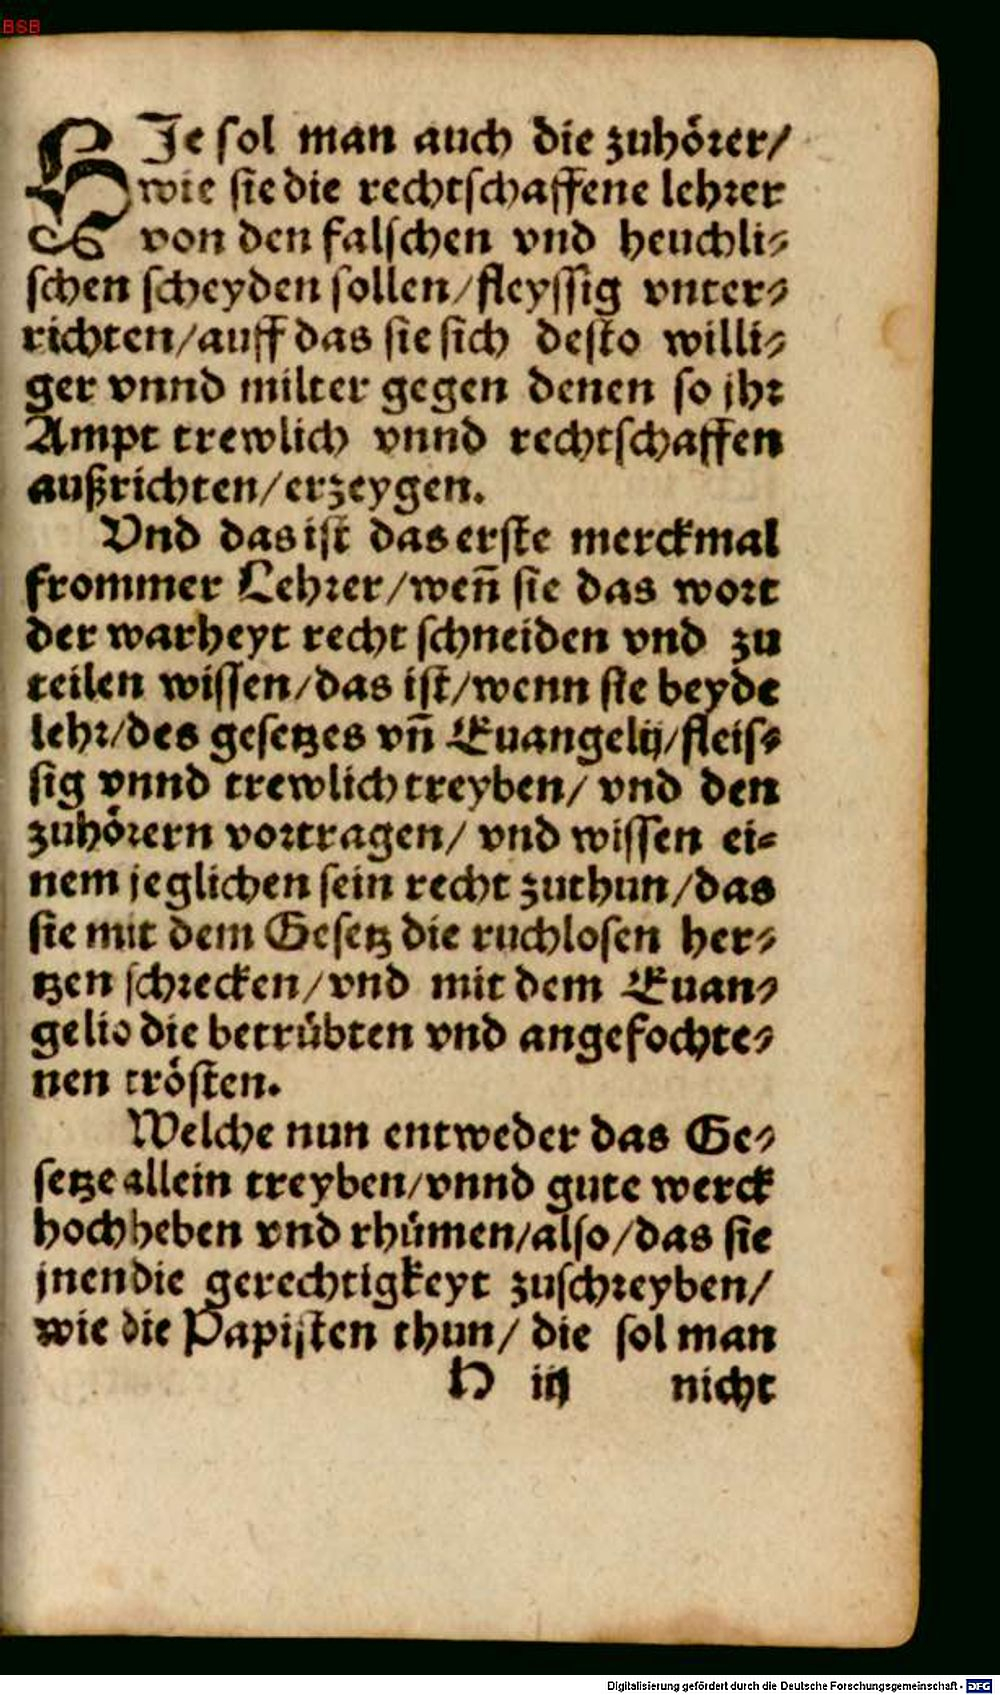 BSB
HJe sol man auch die zuhörer/
wie sie die rechtschaffene lehrer
von den falschen vnd heuchli-
schen scheyden sollen/fleyssig vnter-
richten/auff das sie sich desto willi-
ger vnnd milter gegen denen so jhr
Ampt trewlich vnnd rechtschaffen
außrichten/erzeygen.
Vnd das ist das erste merckmal
frommer Lehrer/weñ sie das wort
der warheyt recht schneiden vnd zu
teilen wissen/das ist/wenn sie beyde
lehr/des gesetzes vñ Euangelij/fleis-
sig vnnd trewlich treyben/ vnd den
zuhörern vortragen/ vnd wissen ei-
nem jeglichen sein recht zuthun/das
sie mit dem Gesetz die ruchlosen her-
tzen schrecken/vnd mit dem Euan-
gelio die betrübten vnd angefochte-
nen trösten.
Welche nun entweder das Ge-
setze allein treyben/vnnd gute werck
hochheben vnd rhümen/also/das sie
jnen die gerechtigkeyt zuschreyben/
wie die Papisten thun/ die sol man
H iij nicht
Digitalisierung gefördert durch die Deutsche Forschungsgemeinschaft - DFG